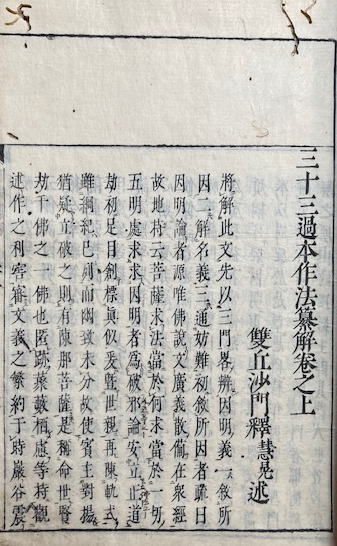 三十三過本作法纂解卷之上
雙丘沙門釋慧晃述
將解此文先以三門畧辨因明義一敘所
因二解名義三通妨難初敘所因者疏曰
因明論者源唯佛說文廣義散備在衆經
故地持云菩薩求法當於何求當於一切
五明處求求因明者為破邪論安立正道
劫初足目創標眞似爰曁世親再陳軌式
雖綱紀已列而幽致未分故使賓主對揚
猶疑立破之則有陳那菩薩是稱命世賢
劫千佛之一佛也匿跡巖藪栖慮等持觀
述作之利害審文義之繁約于時巖谷震